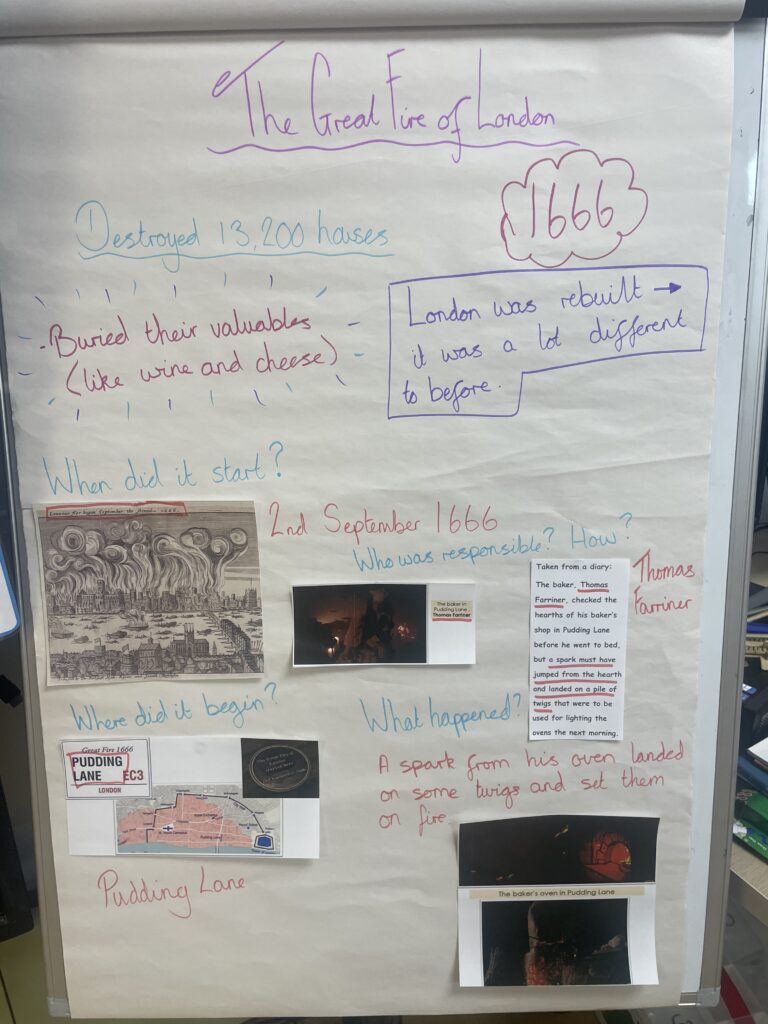 The Great Fire of London
1666
Destroyed 13,200 houses
- Buried their valuables
(like wine and cheese)
London was rebuilt →
it was a lot different
to before.
When did it start?
2nd September 1666
Who was responsible? How?
The baker in
Pudding Lane
Thomas Farriner
Taken from a diary:
The baker, Thomas
Farriner, checked the
hearths of his baker's
shop in Pudding Lane
before he went to bed,
but a spark must have
jumped from the hearth
and landed on a pile of
twigs that were to be
used for lighting the
ovens the next morning.
Thomas
Farriner
Where did it begin?
Great Fire 1666
PUDDING
LANE EC3
LONDON
Pudding Lane
What happened?
A spark from his oven landed
on some twigs and set them
on fire
The baker's oven in Pudding Lane